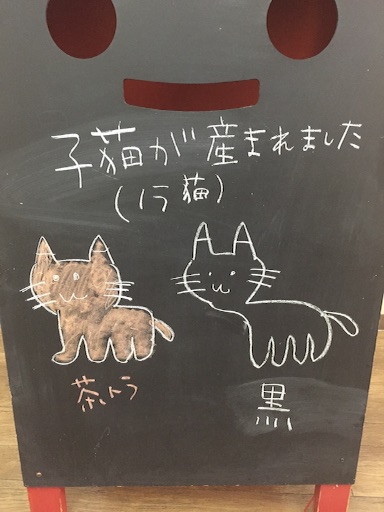 子猫が産まれました
(ノラ猫)
茶トラ
黒